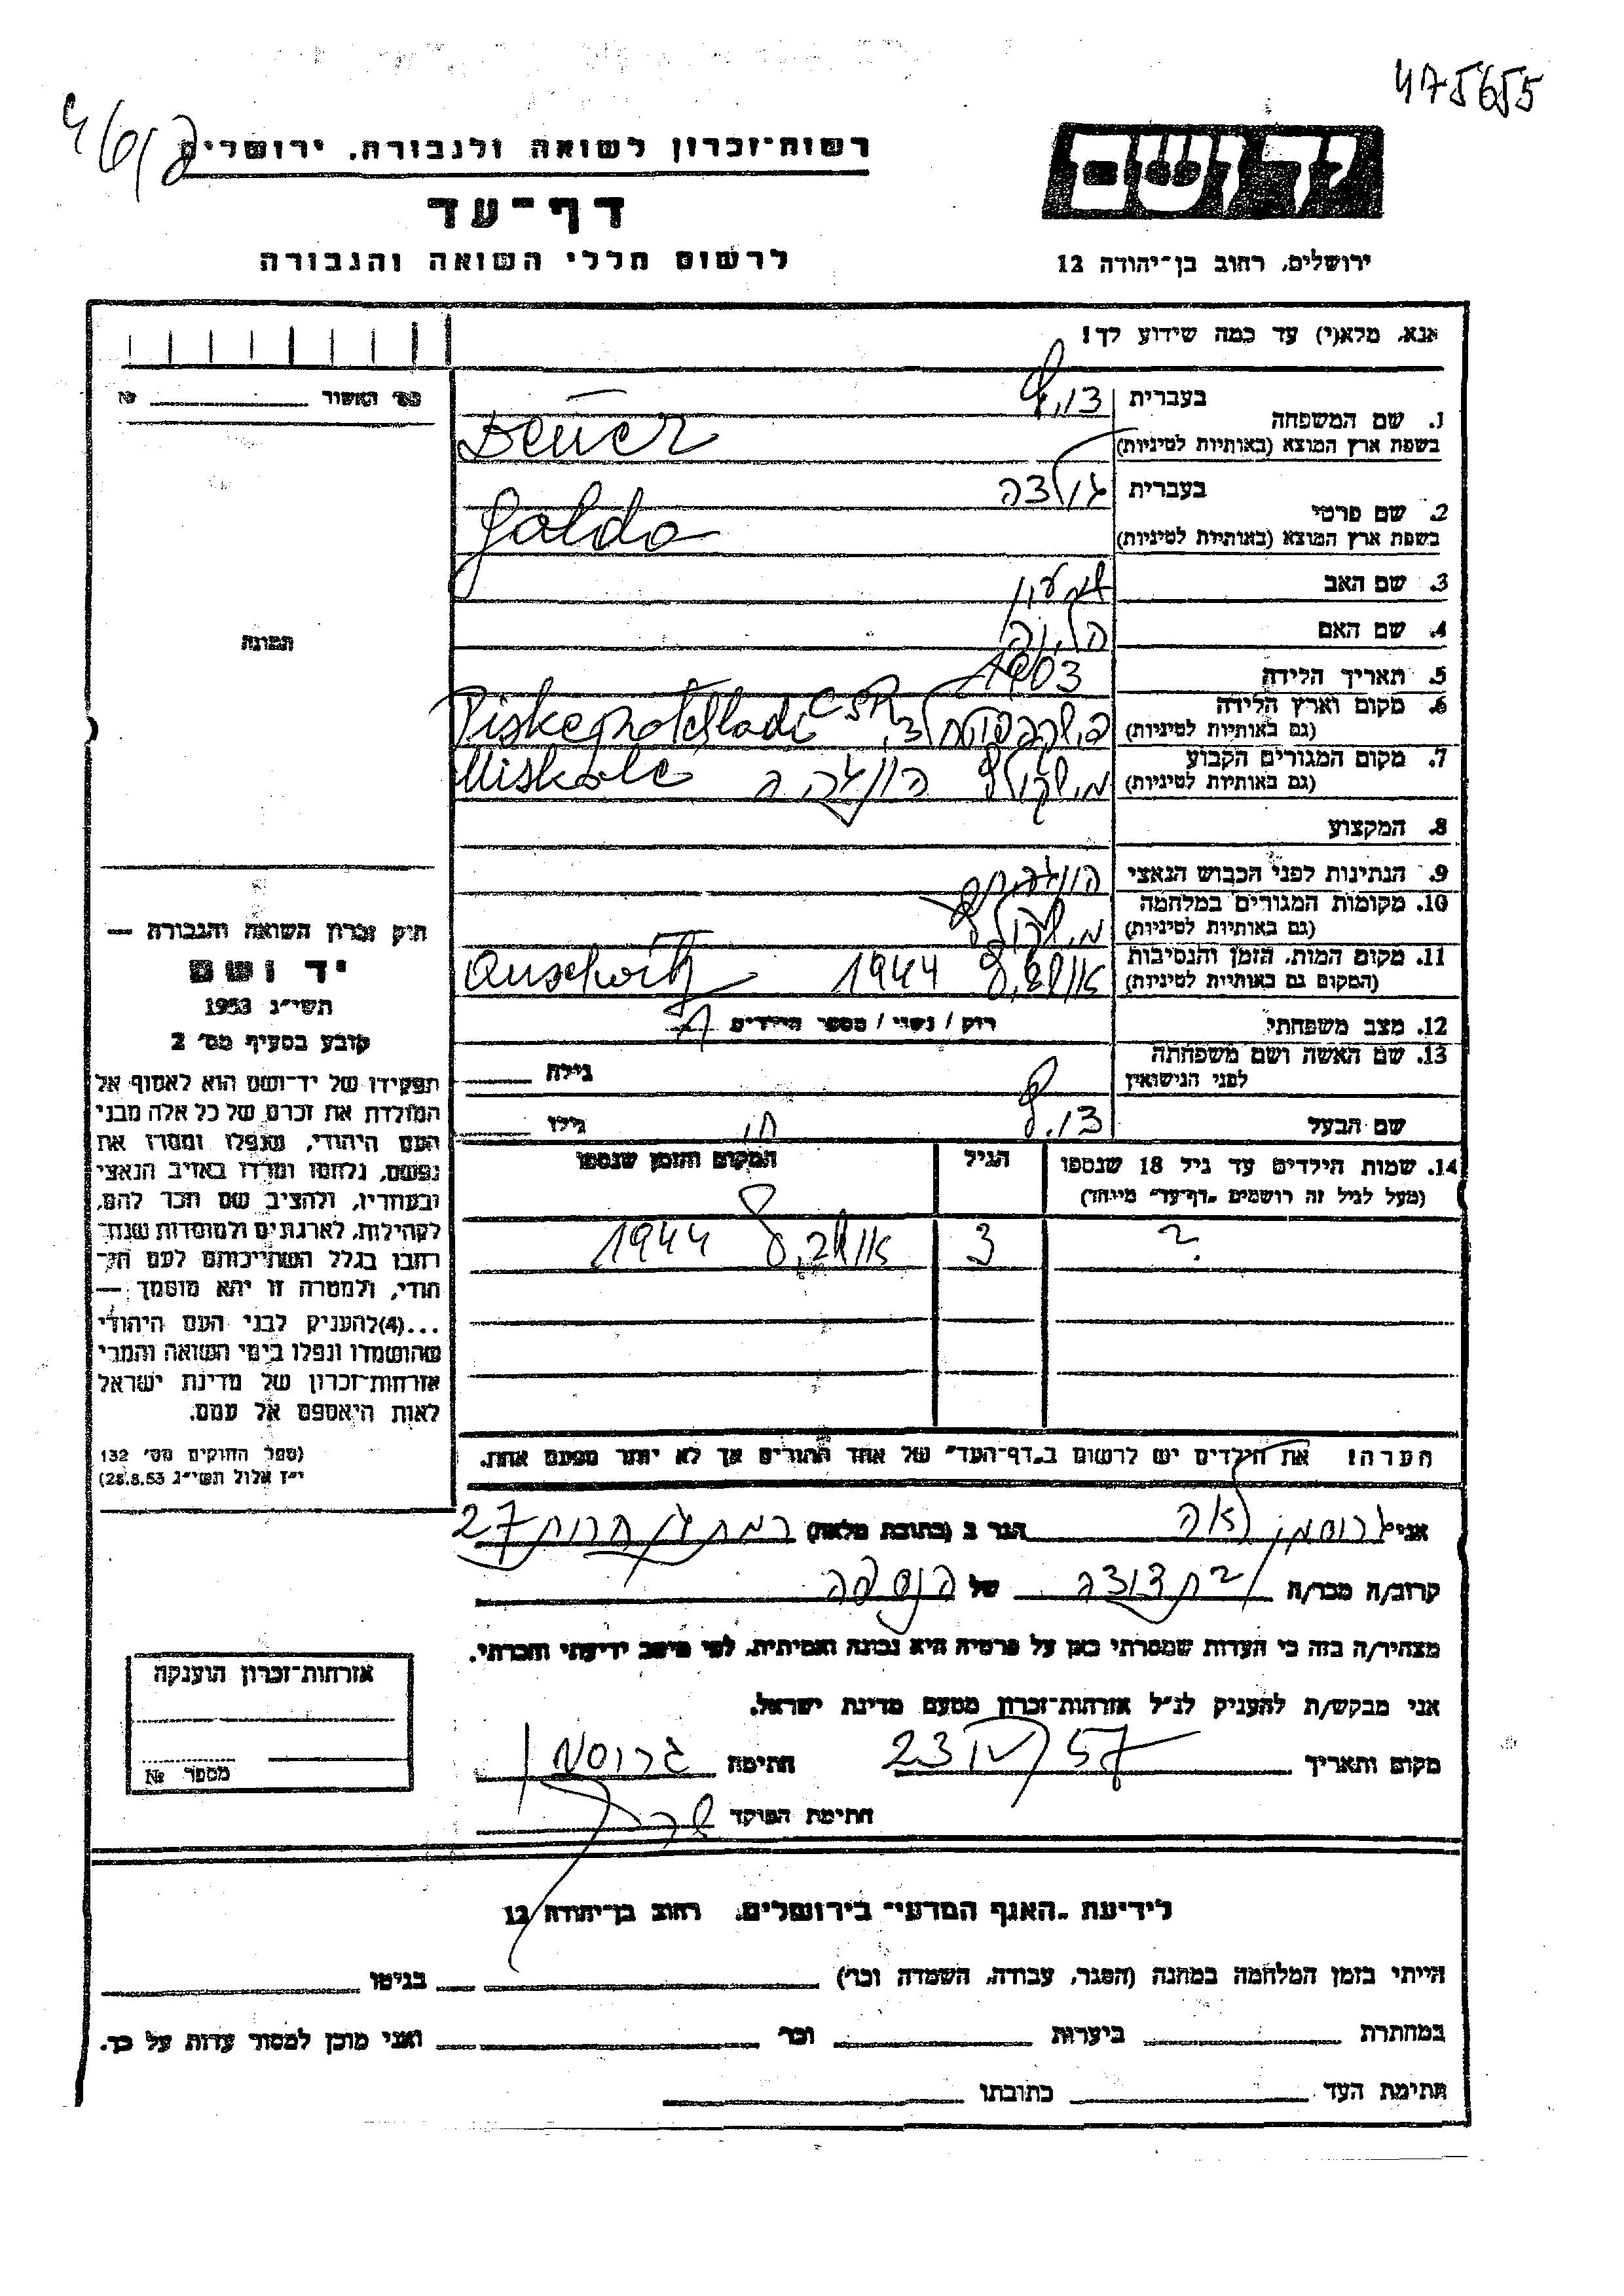 475655
יד ושם
ירושלים, רחוב בן־יהודה 12
רשות־זכרון לשואה ולגבורה, ירושלים
דף־עד
לרשום חללי השואה והגבורה
אנא, מלא(י) עד כמה שידוע לך!
מס׳ האשור № 
1. שם המשפחה
בעברית
בשפת ארץ המוצא (באותיות לטיניות)
2. שם פרטי
בעברית גולדה
בשפת ארץ המוצא (באותיות לטיניות) Golda
3. שם האב שמעון
4. שם האם
5. תאריך הלידה 1903
6. מקום וארץ הלידה
(גם באותיות לטיניות) CSR
7. מקום המגורים הקבוע
(גם באותיות לטיניות) מישקולץ הונגריה Miskolc
8. המקצוע
9. הנתינות לפני הכבוש הנאצי הונגרית
10. מקומות המגורים במלחמה
(גם באותיות לטיניות) מישקולץ
11. מקום המות, הזמן והנסיבות
(המקום גם באותיות לטיניות) אושביץ 1944 Auschwitz
12. מצב משפחתי רוק / נשוי / מספר הילדים
13. שם האשה ושם משפחתה
לפני הנישואין
גילה
שם הבעל
גילו
14. שמות הילדים עד גיל 18 שנספו
(מעל לגיל זה רושמים „דף־עד” מיוחד)
הגיל
המקום והזמן שנספו
? 3 אושביץ 1944
הערה! את הילדים יש לרשום ב„דף־העד” של אחד ההורים אך לא יותר מפעם אחת.
תמונה
חוק זכרון השואה והגבורה —
יד ושם
תשי״ג 1953
קובע בסעיף מס׳ 2
תפקידו של יד־ושם הוא לאסוף אל
המולדת את זכרם של כל אלה מבני
העם היהודי, שנפלו ומסרו את
נפשם, נלחמו ומרדו באויב הנאצי
ובעוזריו, ולהציב שם וזכר להם,
לקהילות, לארגונים ולמוסדות שנח־
רבו בגלל השתייכותם לעם היהו־
חודי, ולמטרה זו יהא מוסמך: —
...(4)להעניק לבני העם היהודי
שהושמדו ונפלו בימי השואה והמרי
אזרחות־זכרון של מדינת ישראל
לאות היאספם אל עמם.
(ספר החוקים מס׳ 132
י״ז אלול תשי״ג 28.8.53)
אני גרוסמן לאה הגר ב (כתובת מלאה) רמת גן חרות 27
קרוב/ה מכר/ה בת דודה של הנספה
מצהיר/ה בזה כי העדות שמסרתי כאן על פרטיה היא נכונה ואמיתית, לפי מיטב ידיעתי והכרתי.
אני מבקש/ת להעניק לנ״ל אזרחות־זכרון מטעם מדינת ישראל.
מקום ותאריך 23 IV 57 חתימה גרוסמן
חתימת הפוקד
אזרחות־זכרון הוענקה
מספר №
לידיעת „האגף המדעי” בירושלים, רחוב בן־יהודה 12
הייתי בזמן המלחמה במחנה (הסגר, עבודה, השמדה וכו׳) בגיטו
במחתרת ביערות וכו׳ ואני מוכן למסור עדות על כך.
חתימת העד כתובתו